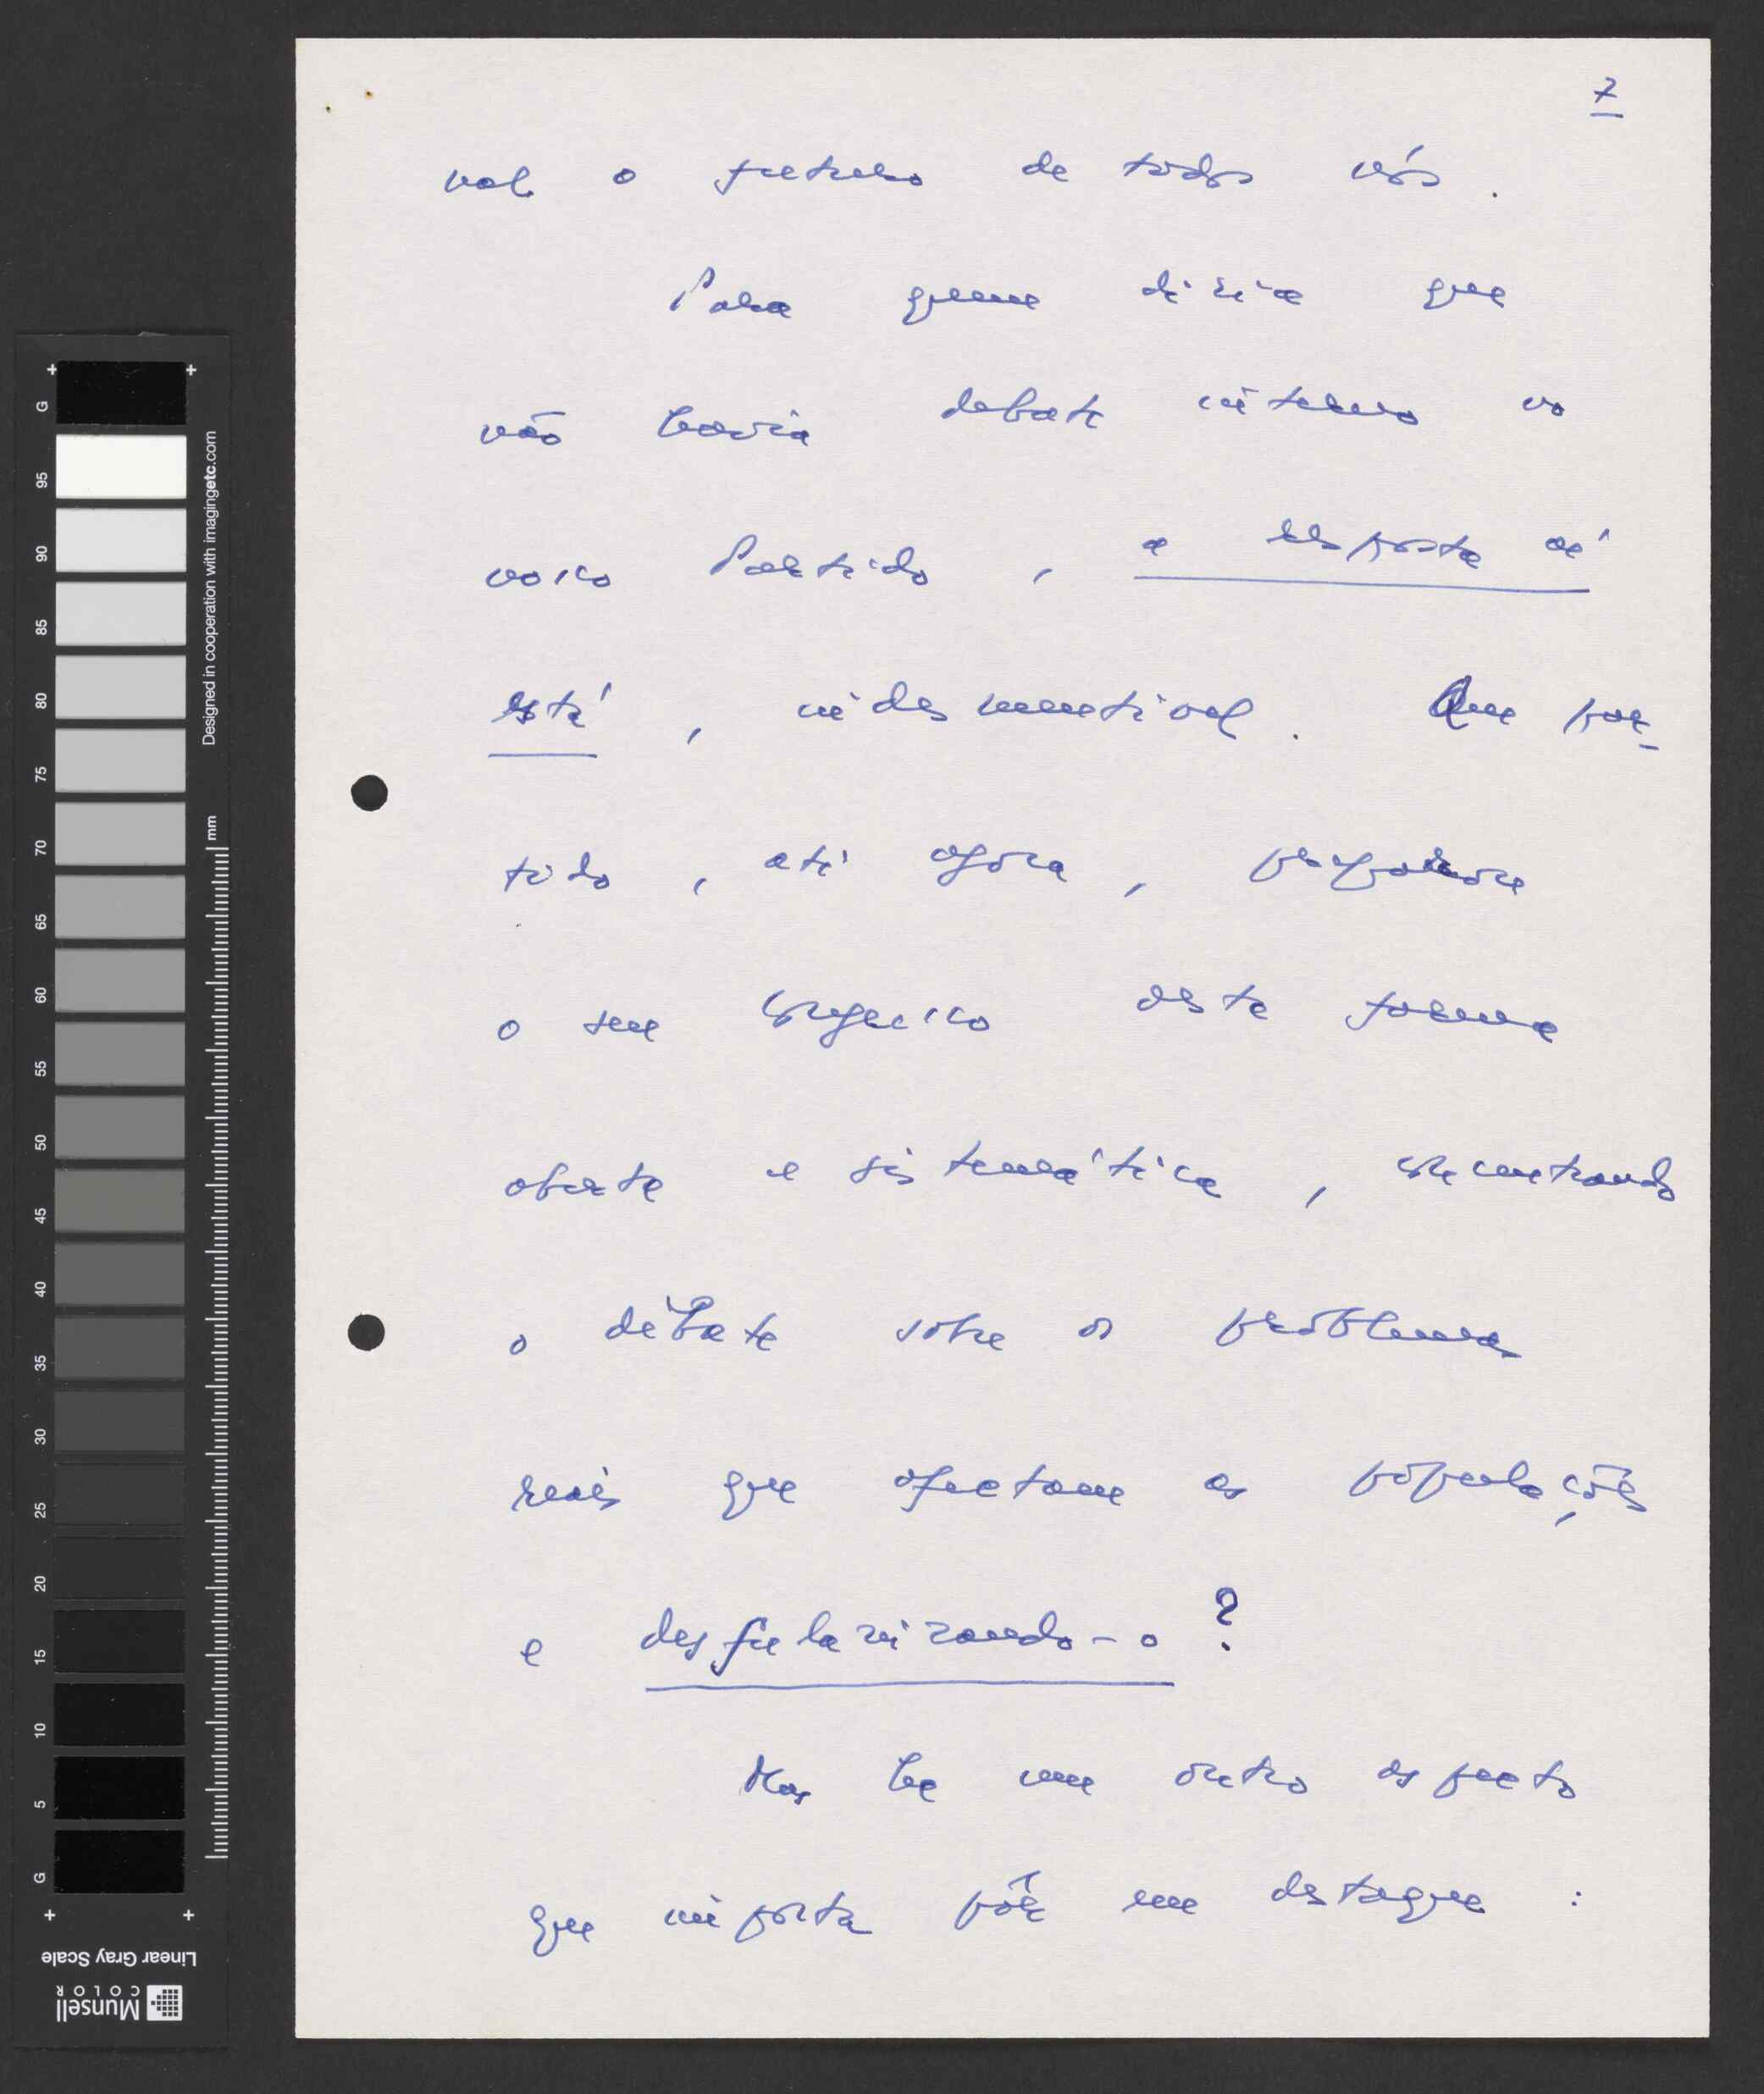 7
nal o futuro de todos nós.
Para quem dizia que
não havia debate interno no
nosso Partido, a resposta aí
está, indesmentível. Que par-
tido, até agora,
o seu Congresso desta forma
aberta e sistemática,
o debate sobre os problemas
reais que afectam as populações
e desfulanizando-o?
Mas há um outro aspecto
que importa pôr em destaque:
G 95 90 85 80 75 70 65 60 55 50 45 40 35 30 25 20 15 10 5 G
Designed in cooperation with imagingetc.com
mm
Linear Gray Scale
Munsell
COLOR